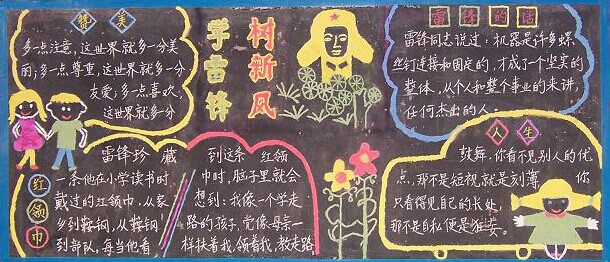 赞美
多一点注意,这世界就多一分美
丽;多一点尊重,这世界就多一分
友爱;多一点喜欢,
这世界就多一分
学雷锋
树新风
雷锋的话
雷锋同志说过:机器是许多螺
丝钉连接和固定的,才成了个坚实的
整体,从个人和整个事业的来讲,
任何杰出的人。
红领巾
雷锋珍藏
一条他在小学读书时
戴过的红领巾,从家
乡到鞍钢,从鞍钢
到部队,每当他看
到这条红领
巾时,脑子里就会
想到:我像一个学走
路的孩子,党像母亲一
样扶着我,领着我,教走路
人生
鼓舞,你看不见别人的优
点,那不是短视就是刻薄, 你
只看得见自己的长处,
那不是自私便是